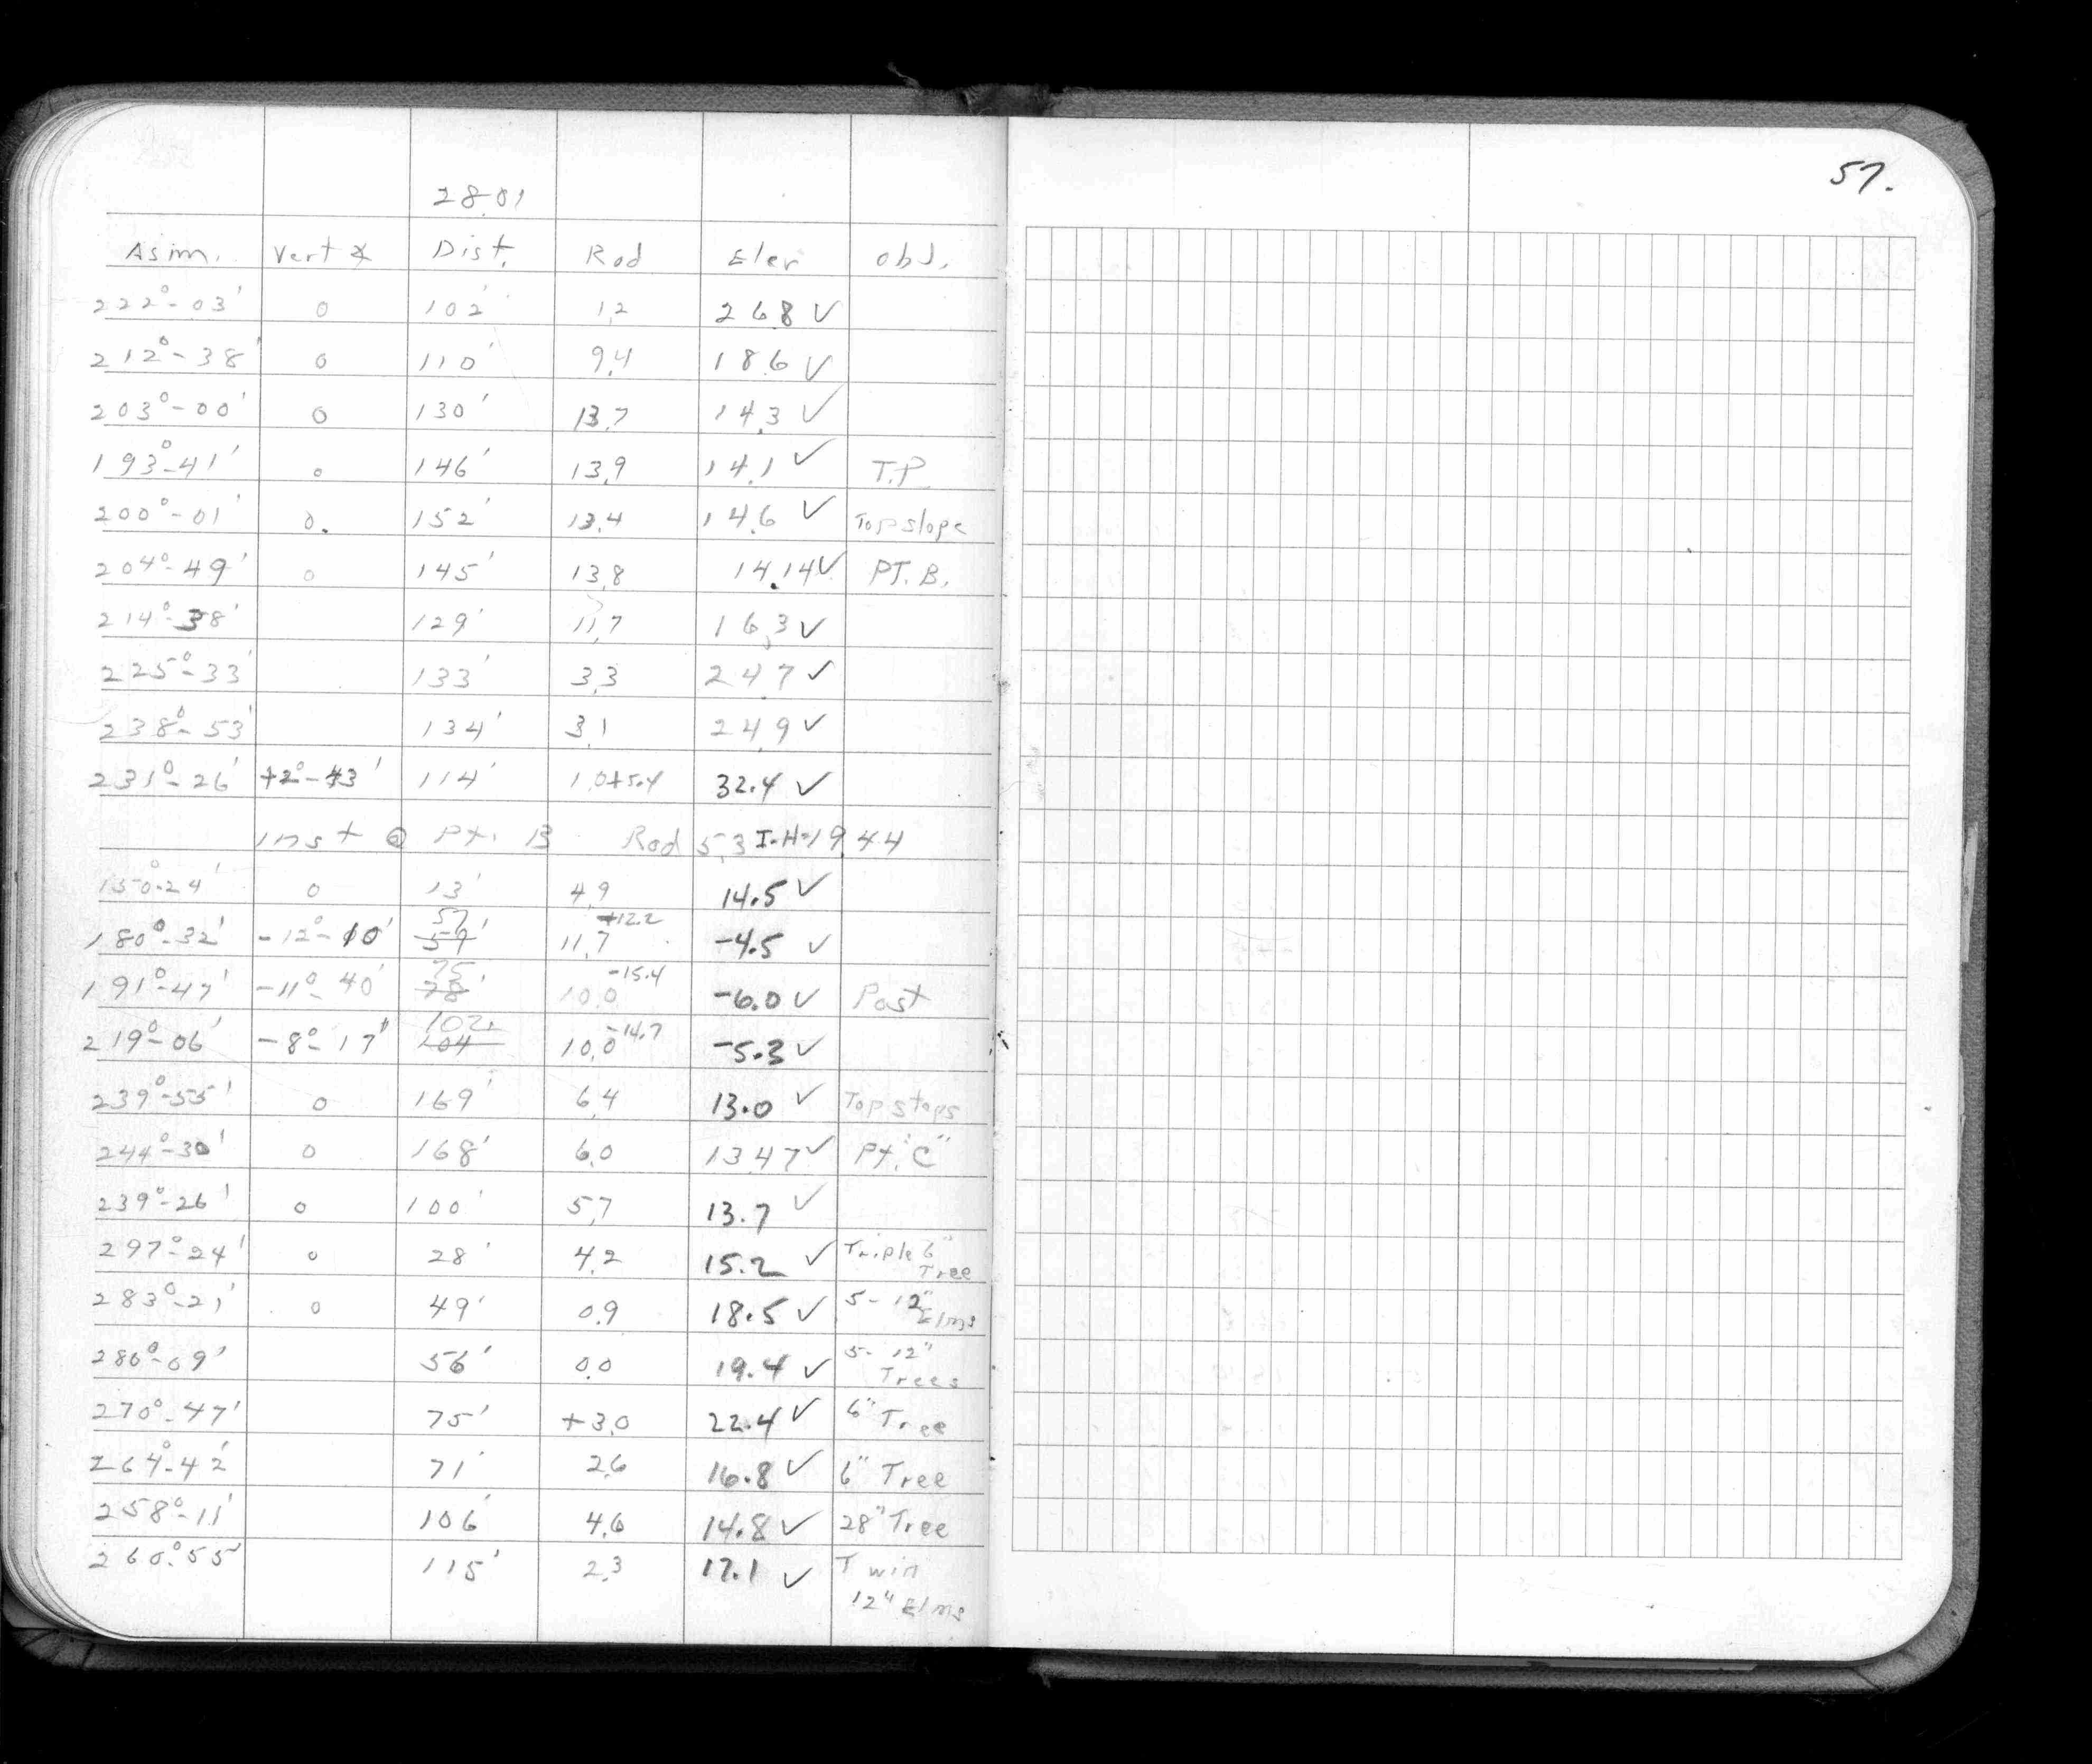 57.
28.01
Asim. Vert ∡ Dist. Rod Elev obj.
222°-03' 0 102' 1.2 26.8 ✓
212°-38' 0 110' 9.4 18.6 ✓
203°-00' 0 130' 13.7 14.3 ✓
193°-41' 0 146' 13.9 14.1 ✓ T.P.
200°-01' 0. 152' 13.4 14.6 ✓ Top slope
204°-49' 0 145' 13.8 14.14 ✓ PT. B.
214°-38' 129' 11.7 16.3 ✓
225°-33' 133' 3.3 24.7 ✓
238°-53' 134' 3.1 24.9 ✓
231°-26' +2°-43' 114' 1.0+5.4 32.4 ✓
Inst @ Pt. B Rod 5.3 I.H=19.44
150°-24' 0 13' 4.9 14.5 ✓
180°-32' -12°-10' 57' 59' 11.7 +12.2 -4.5 ✓
191°-47' -11°-40' 75' 78' 10.0 -15.4 -6.0 ✓ Post
219°-06' -8°-17" 102' 104 10.0 -14.7 -5.3 ✓
239°-55' 0 169' 6.4 13.0 ✓ Top steps
244°-30' 0 168' 6.0 13.47 ✓ Pt. "C"
239°-26' 0 100' 5.7 13.7 ✓
297°-24' 0 28' 4.2 15.2 ✓ Triple 6"
Tree
283°-21' 0 49' 0.9 18.5 ✓ 5-12"
Elms
280°-09' 56' 0.0 19.4 ✓ 5-12"
Trees
270°-47' 75' +3.0 22.4 ✓ 6" Tree
264°-42' 71' 2.6 16.8 ✓ 6" Tree
258°-11' 106' 4.6 14.8 ✓ 28" Tree
260°-55' 115' 2.3 17.1 ✓ Twin
12" Elms